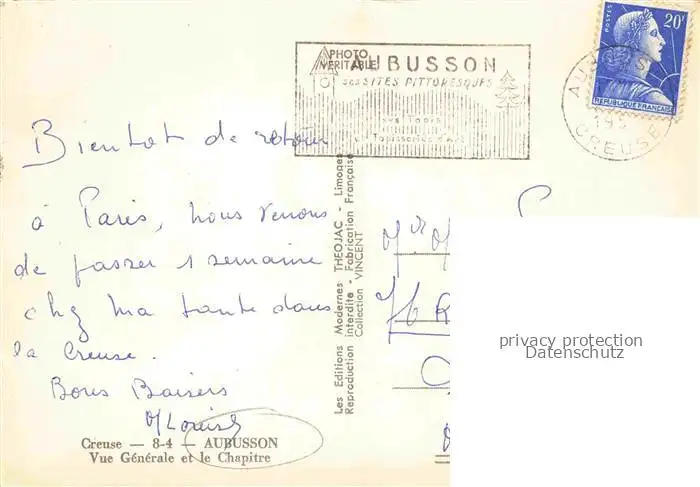 PHOTO
VERITABLE
AUBUSSON
ses SITES PITTORESQUES
ses Tapis
et Tapisseries d'Art
POSTES
20F
REPUBLIQUE FRANÇAISE
AUBUSSON
CREUSE
Bientot de retour
à Paris, nous venons
de passer 1 semaine
chez ma tante dans
la Creuse.
Bons Baisers
Creuse — 8-4 — AUBUSSON
Vue Générale et le Chapitre
Les Editions Modernes THEOJAC - Limoges
Reproduction interdite - Fabrication Française
Collection VINCENT
privacy protection
Datenschutz